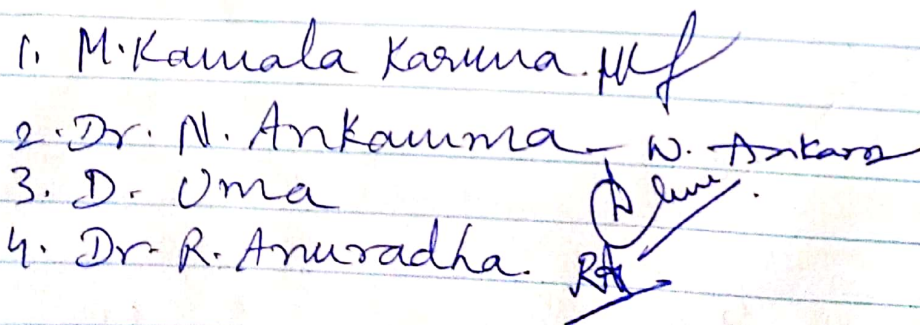 1. M. Kamala Karuna.
2. Dr. N. Ankamma - N. Ankam
3. D. Uma
4. Dr. R. Anuradha.